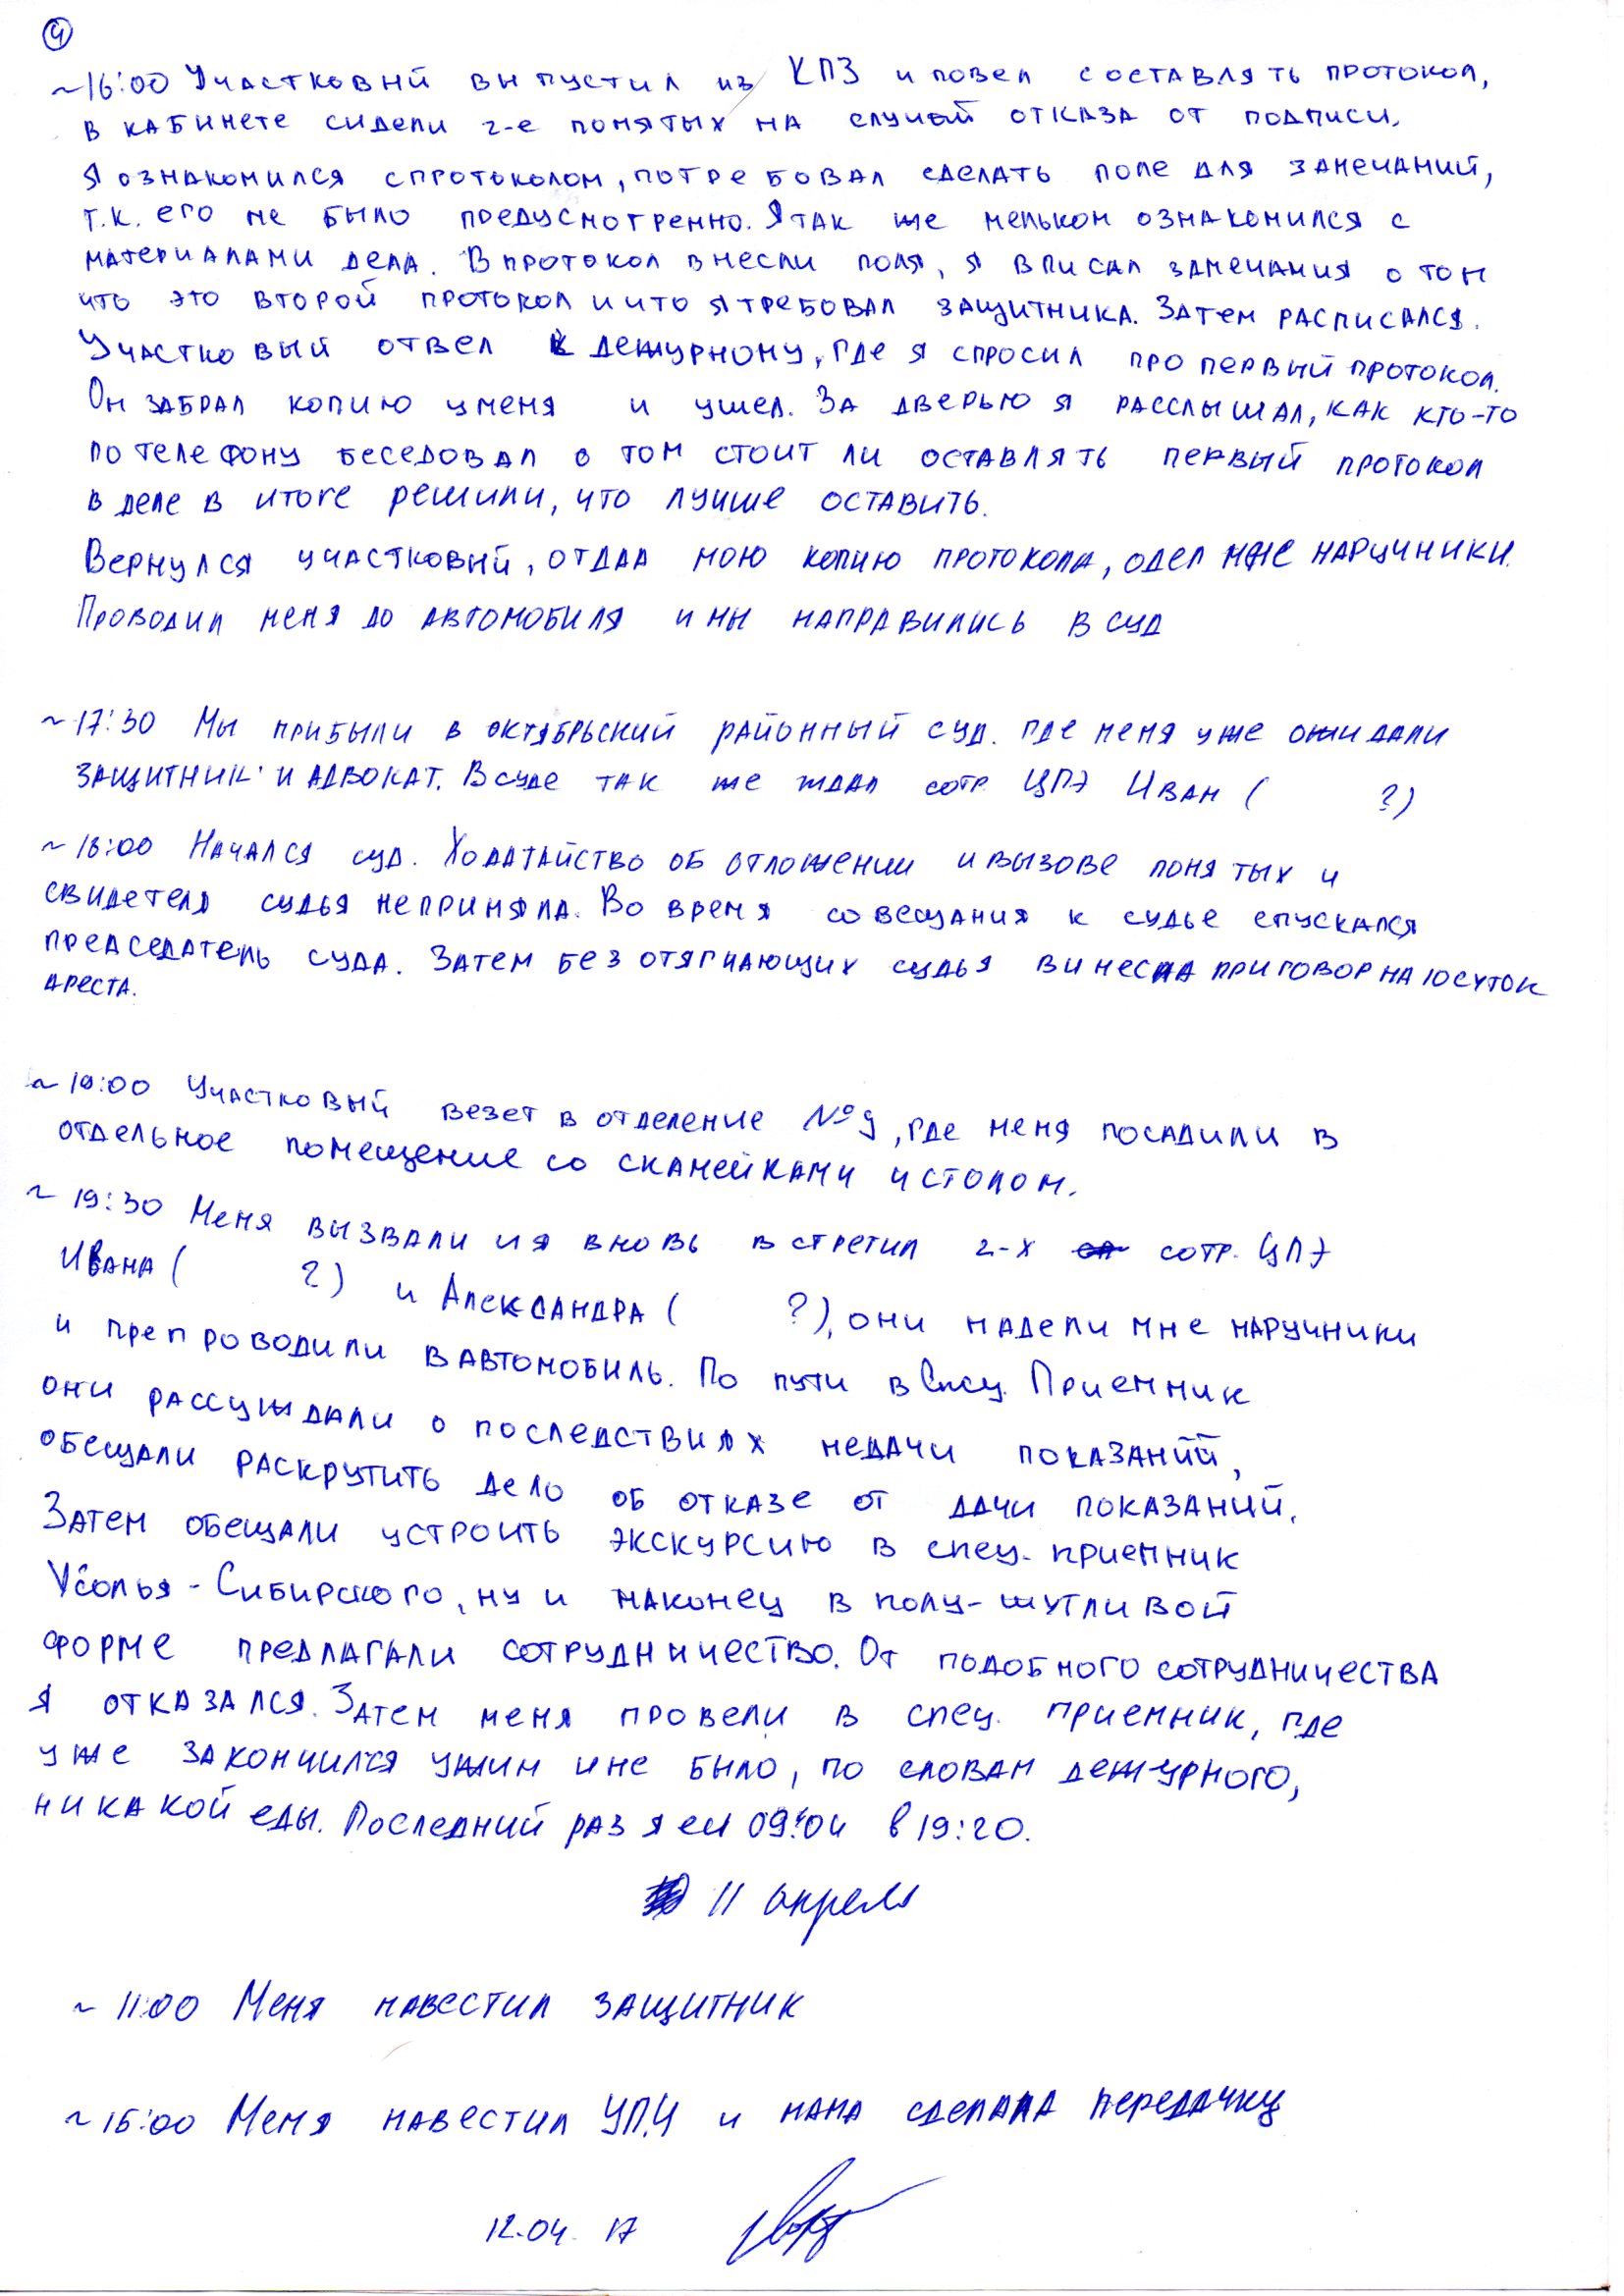 4
~16:00 Участковый выпустил из КПЗ и повел составлять протокол,
в кабинете сидели 2-е понятых на случай отказа от подписи.
Я ознакомился спротоколом, потребовал сделать поле для замечаний,
т.к. его не было предусмотренно. Я так же мельком ознакомился с
материалами дела. В протокол внесли поля, я вписал замечания о том
что это второй протокол и что я требовал защитника. Затем расписался.
Участковый отвел к дежурному, где я спросил про первый протокол.
Он забрал копию у меня и ушел. За дверью я расслышал, как кто-то
по телефону беседовал о том стоит ли оставлять первый протокол
в деле в итоге решили, что лучше оставить.
Вернулся участковый, отдал мою копию протокола, одел мне наручники.
Проводил меня до автомобиля и мы направились в суд
~17:30 Мы прибыли в октябрьский районный суд. где меня уже ожидали
защитник и адвокат. В суде так же ждал сотр. ЦПЭ Иван ( ?)
~18:00 Начался суд. Ходатайство об отложении и вызове понятых и
свидетеля судья не приняла. Во время совещания к судье спускался
председатель суда. Затем без отягчающих судья винесла приговор на 10 суток
ареста.
~19:00 Участковый везет в отделение №9, где меня посадили в
отдельное помещение со скамейками и столом.
~19:30 Меня вызвали и я вновь встретил 2-х сотр. ЦПЭ
Ивана ( ?) и Александра ( ?), они надели мне наручники
и препроводили в автомобиль. По пути в Спец. Приемник
они рассуждали о последствиях недачи показаний,
обещали раскрутить дело об отказе от дачи показаний.
Затем обещали устроить экскурсию в спец. приемник
Усолья-Сибирского, ну и наконец в полу-шутливой
форме предлагали сотрудничество. От подобного сотрудничества
я отказался. Затем меня провели в спец. приемник, где
уже закончился ужин и не было, по словам дежурного,
никакой еды. Последний раз я ел 09.04 в 19:20.
11 апреля
~11:00 Меня навестил защитник
~16:00 Меня навестил УПЧ и мама сделала передачку
12.04.17